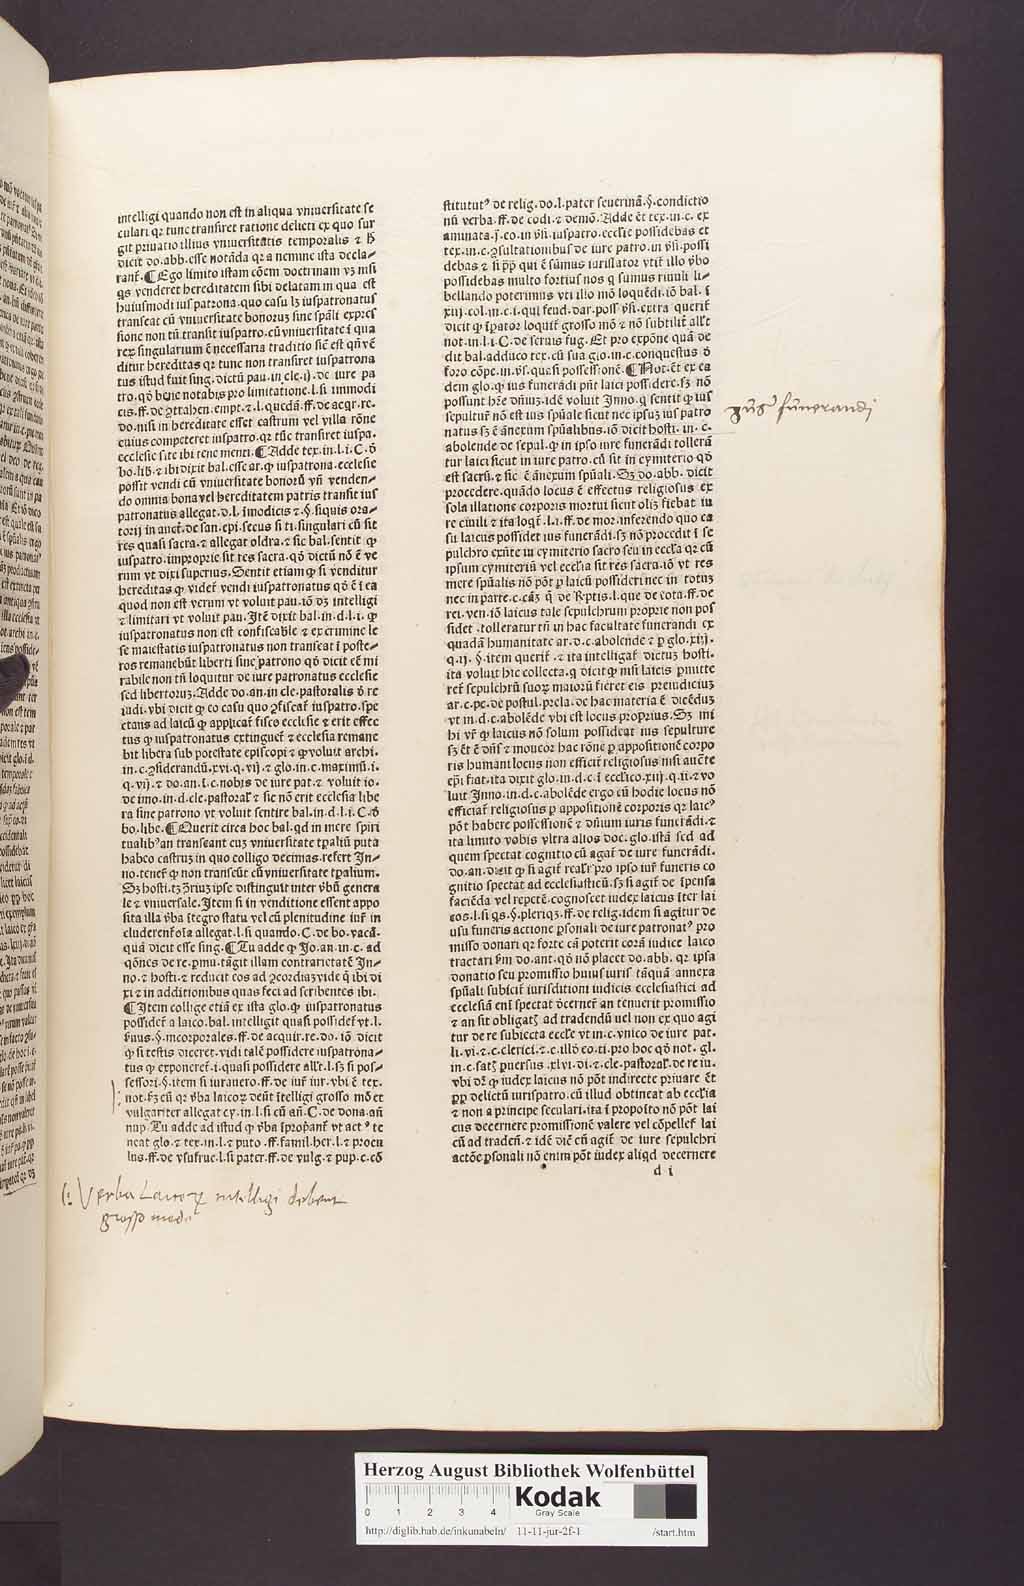 intelligi quando non est in aliqua vniuersitate se
culari qr tunc transiret ratione delicti ex quo sur
git priuatio illius vniuersitatis temporalis ⁊ ꝫ
dicit do. abb. esse notāda qr a nemine ista decla⸗
rant̄. ¶ Ego limito istam cōem doctrinam vꝫ nisi
qs venderet hereditatem sibi delatam in qua est
huiusmodi ius patrona. quo casu lꝫ iuspatronatus
transeat cū vniuersitate bonorum sine spāli expres
sione non tn̄ transit iuspatro. cū vniuersitate ī qua
rerū singularium ē necessaria traditio sic̄ est qn̄ vē
ditur hereditas qr tunc non transiret iuspatrona
tus istud fuit sing. dictū pau. in cle. ij. de iure pa
tro. qō bene notabis pro limitatione. l. si inmodi
cis. ff. de ꝯtrahen. empt. ⁊. l. quedā. ff. de acqr. re.
do. nisi in hereditate esset castrum vel villa rōne
cuius competeret iuspatro. qr tūc transiret iuspa.
ecclesie site ibi tene menti. ¶ Adde tex. in. l. i. C. ō
bo. lib. ⁊ ibi dixit bal. esse ar. ꝙ iuspatrona. ecclesie
possit vendi cū vniuersitate bonorū vn̄ venden⸗
do omnia bona vel hereditatem patris transit ius
patronatus allegat. d. l. imodicis ⁊. §. siquis ora⸗
torij in auct. de san. epi. secus si ti. singulari cū sit
res quasi sacra. ⁊ allegat oldra. ⁊ sic bal. sentit ꝙ
iuspatro. improprie sit res sacra. qō dictū nō ē ve
rum vt dixi superius. Sentit etiam ꝙ si venditur
hereditas ꝙ videt̄ vendi iuspatronatus qō ē i ea
quod non est verum vt voluit pau. iō dꝫ intelligi
⁊ limitari vt voluit pau. Itē dixit bal. in. d. l. i. ꝙ
iuspatronatus non est confiscabile ⁊ ex crimine le
se maiestatis iuspatronatus non transeat i poste⸗
ros remanebūt liberti sine patrono qō dicit cē mi
rabile non tn̄ loquitur de iure patronatus ecclesie
sed libertorum. Adde do. an. in cle. pastoralis ō re
iudi. vbi dicit ꝙ eo casu quo ꝯfiscat̄ iuspatro. spe
ctans ad laicū ꝙ applicat̄ fisco ecclesie ⁊ erit effec
tus ꝙ iuspatronatus extinguet̄ ⁊ ecclesia remane
bit libera sub potestate episcopi ⁊ ꝙ voluit archi.
in. c. ꝯsiderandū. xvi. q. vij. ⁊ glo. in. c. maximū. i.
q. vij. ⁊ do. an. i. c. nobis de iure pat. ⁊ voluit io.
de imo. in. d. cle. pastoral' ⁊ sic nō erit ecclesia libe
ra sine patrono vt voluit sentire bal. in. d. l. i. C. ō
bo. libe. ¶ Querit circa hoc bal. qd in mere spiri
tualib' an transeant cuꝫ vniuersitate tpaliū puta
habeo castruꝫ in quo colligo decimas. refert In⸗
no. tenet̄ ꝙ non transeūt cū vniuersitate tpalium.
Sꝫ hosti. tꝫ ꝯriuꝫ ipse distinguit inter v̄bū genera
le ⁊ vniuersale. Item si in venditione essent appo
sita illa v̄ba ītegro statu vel cū plenitudine iur̄ in
cluderent̄ oīa allegat. l. si quando. C. de bo. vacā.
quā dicit esse sing. ¶ Tu adde ꝙ Jo. an. in. c. ad
qōnes de re. pmu. tāgit illam contrarietatē In⸗
no. ⁊ hosti. ⁊ reducit eos ad ꝯcordiaꝫ vide q̄ ibi di
xi ⁊ in additionibus quas feci ad scribentes ibi.
¶ Item collige etiā ex ista glo. ꝙ iuspatronatus
possidet̄ a laico. bal. intelligit quasi possidet̄ vt. l.
ƀuus. §. incorporales. ff. de acquir. re. do. iō dicit
ꝙ si testis diceret. vidi talē possidere iuspatrona⸗
tus ꝙ exponeret̄. i. quasi possidere all't. l. sꝫ si pos⸗
sessori. §. item si iurauero. ff. de iur̄ iur. vbi ē tex.
not. fꝫ cū ꝙ v̄ba laicorꝫ deūt ītelligi grosso mō et
vulgariter allegat cy. in. l. si cū an̄. C. de dona. an̄
nup. Tu adde ad istud ꝙ v̄ba īpropāt̄ vt act' te
neat glo. ⁊ tex. in. l. ⁊ puto. ff. famil. her. l. ⁊ procu
lus. ff. de vsufruc. l. si pater. ff. de vulg. ⁊ pup. c. cō
stitutut' de relig. do. l. pater seuerinā. §. condictio
nū verba. ff. de codi. ⁊ demō. Adde ēt tex. in. c. ex
aminata. j. co. in v̄si. iuspatro. ecclesie possidebas et
tex. in. c. ꝯsultationibus de iure patro. in v̄si. possi
debas ⁊ si pp̄ qui ē sūmus iurislator vtit̄ illo v̄bo
possidebas multo fortius nos q sumus riuuli li⸗
bellando poterimus vti illo mō loquēdi. iō bal. i
xiij. col. in. c. i. qui feud. dar. poss' v̄si. extra querit̄
dicit ꝙ īpator loquit̄ grosso mō ⁊ nō subtilit̄ all't
not. in. l. i. C. de seruis fug. Et pro expōne quā de
dit bal. adduco tex. cū sua glo. in. c. conquestus ō
foro cōpe. in v̄s. quasi possessionē. ¶ Not. ēt ex ea
dem glo. ꝙ ius funerādi pn̄t laici possidere. sꝫ nō
possunt hr̄e dn̄iuꝫ. idē voluit Inno. q sentit ꝙ ius
sepultur̄ nō est ius spūale sicut nec ipsuꝫ ius patro
natus sꝫ ē ānexum spūalibus. iō dicit hosti. in. c.
abolende de sepul. ꝙ in ipso iure funerādi tollerā
tur laici sicut in iure patro. cū sit in cymiterio qō
est sacrū. ⁊ sic ē ānexum spūali. Sꝫ do. abb. dicit
procedere. quādo locus ē effectus religiosus ex
sola illatione corporis mortui sicut olim fiebat iu
re ciuili ⁊ ita loqt̄. l. i. ff. de mor. inferendo quo ca
su laicus possidet ius funerādi. sꝫ nō procedit ī se
pulchro exn̄te in cymiterio sacro seu in eccl'ia qr cū
ipsum cymiteriū vel eccl'ia sit res sacra. iō vt res
mere spūalis nō pōt p laicū possideri nec in totuꝫ
nec in parte. c. cāꝫ q̄ de ꝶptis. l. que de tota. ff. de
rei. ven. iō laicus tale sepulchrum proprie non pos
sidet. tolleratur tn̄ in hac facultate funerandi ex
quadā humanitate ar. d. c. abolēde ⁊ p glo. xiij.
q. ij. §. item querit̄. ⁊ ita intelligat̄ dictuꝫ hosti.
ita voluit hic collecta. q dicit ꝙ nisi laicis pmitte
ret̄ sepulchrū suoꝝ maiorū fieret eis preiudiciuꝫ
ar. c. pe. de postul. prela. de hac materia ē dicēduꝫ
vt in. d. c. abolēde vbi est locus proprius. Sꝫ mi
hi vr̄ ꝙ laicus nō solum possideat ius sepulture
sꝫ ēt ē dn̄s' ⁊ moueor hac rōne p appositionē corpo
ris humani locus non efficit̄ religiosus nisi auc̄te
ep̄i fiat. ita dixit glo. in. d. c. i eccl'ico. xiij. q. ii. ⁊ vo
luit Inno. in. d. c. abolēde ergo cū hodie locus nō
efficiat̄ religiosus p appositionē corporis qr laic'
pōt habere possessionē ⁊ dn̄ium iuris funerādi. ⁊
ita limito vobis vltra alios doc. glo. istā sed ad
quem spectat cognitio cū agat̄ de iure funerādi.
do. an. dicit ꝙ si agit̄ real'r pro ipso iur̄ funeris co
gnitio spectat ad ecclesiasticū. sꝫ si agit̄ de īpensa
faciēda vel repetē. cognoscet iudex laicus iter lai
cos. l. si qs. §. pleriqꝫ. ff. de relig. idem si agitur de
usu funeris actione psonali de iure patronat' pro
misso donari qr forte cā poterit corā iudice laico
tractari fm̄ do. ant. qō nō placet do. abb. qr ipsa
donatio seu promissio huius iuris tāquā annexa
spūali subicit̄ iurisditioni iudicis ecclesiastici ad
ecclesiā eni spectat ōcerner̄ an tenuerit promissio
⁊ an sit obligatꝫ ad tradendū uel non ex quo agi
tur de re subiecta eccl'ie vt in. c. vnico de iure pat.
li. vi. ⁊. c. clerici. ⁊. c. illō co. ti. pro hoc qō not. gl.
in. c. satꝫ puersus. xlvi. di. ⁊. cle. pastoral'. de re iu.
vbi dr̄ ꝙ iudex laicus nō pōt indirecte priuare ēt
ppt delictū iurispatro. cū illud obtineat ab eccl'ia
⁊ non a principe seculari. ita ī proposito nō pōt lai
cus decernere promissionē valere vel cōpellet̄ lai
cū ad traden̄. ⁊ idē diē cū agit̄ de iure sepulchri
actōe psonali nō enim pōt iudex aliqd decernere
d i
Jus funerandi
Verba Laicorꝝ intelligi debent
grosso modo
Herzog August Bibliothek Wolfenbüttel
0 1 2 3 4
Kodak
Gray Scale
http://diglib.hab.de/inkunabeln/ 11-11-jur-2f-1 /start.htm